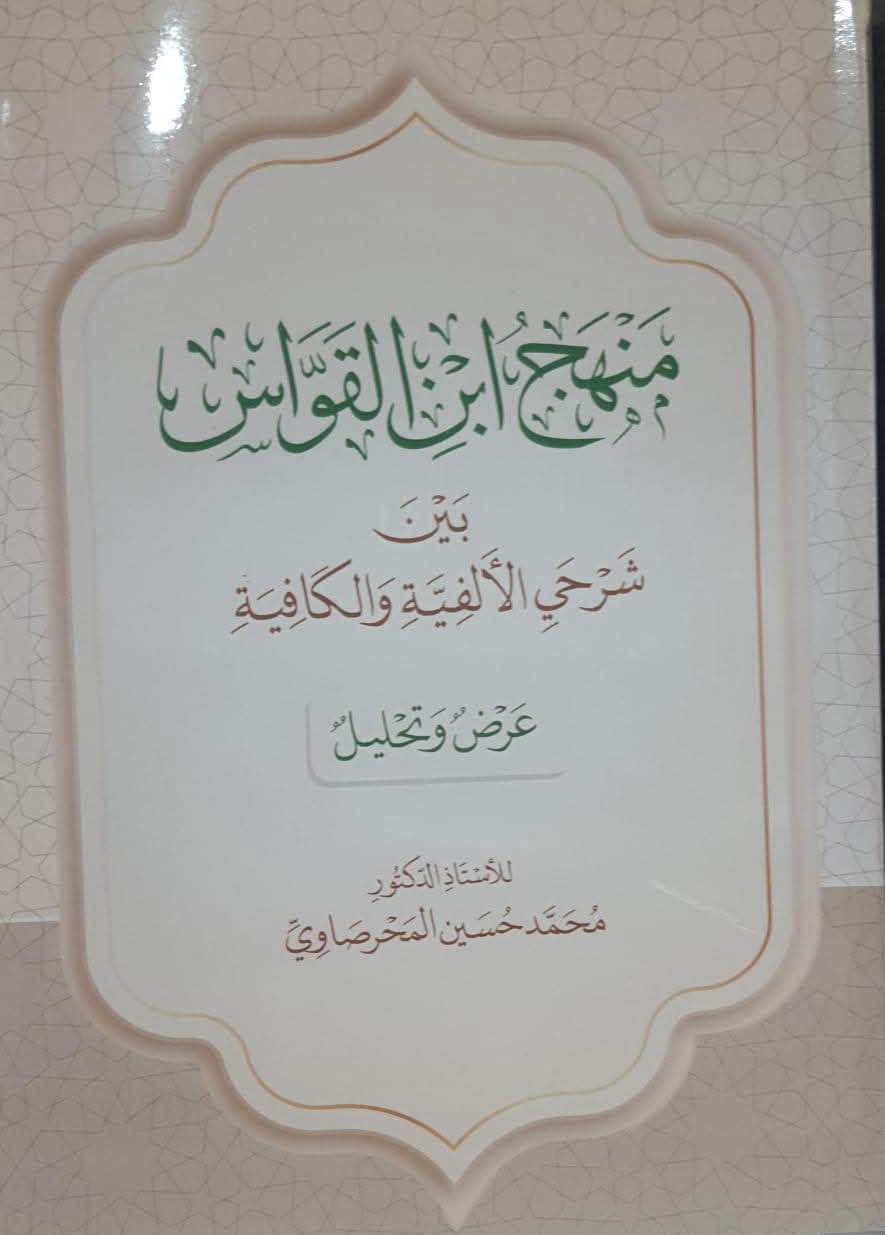 مَنْهَجُ ابْنِ الْقَوَّاسِ
بَيْنَ
شَرْحَيِ الأَلْفِيَّةِ وَالكَافِيَةِ
عَرْضٌ وَتَحْلِيلٌ
للأُسْتَاذِ الدّكتُورِ
مُحَمَّد حُسَين المَحْرَصَاوِيِّ